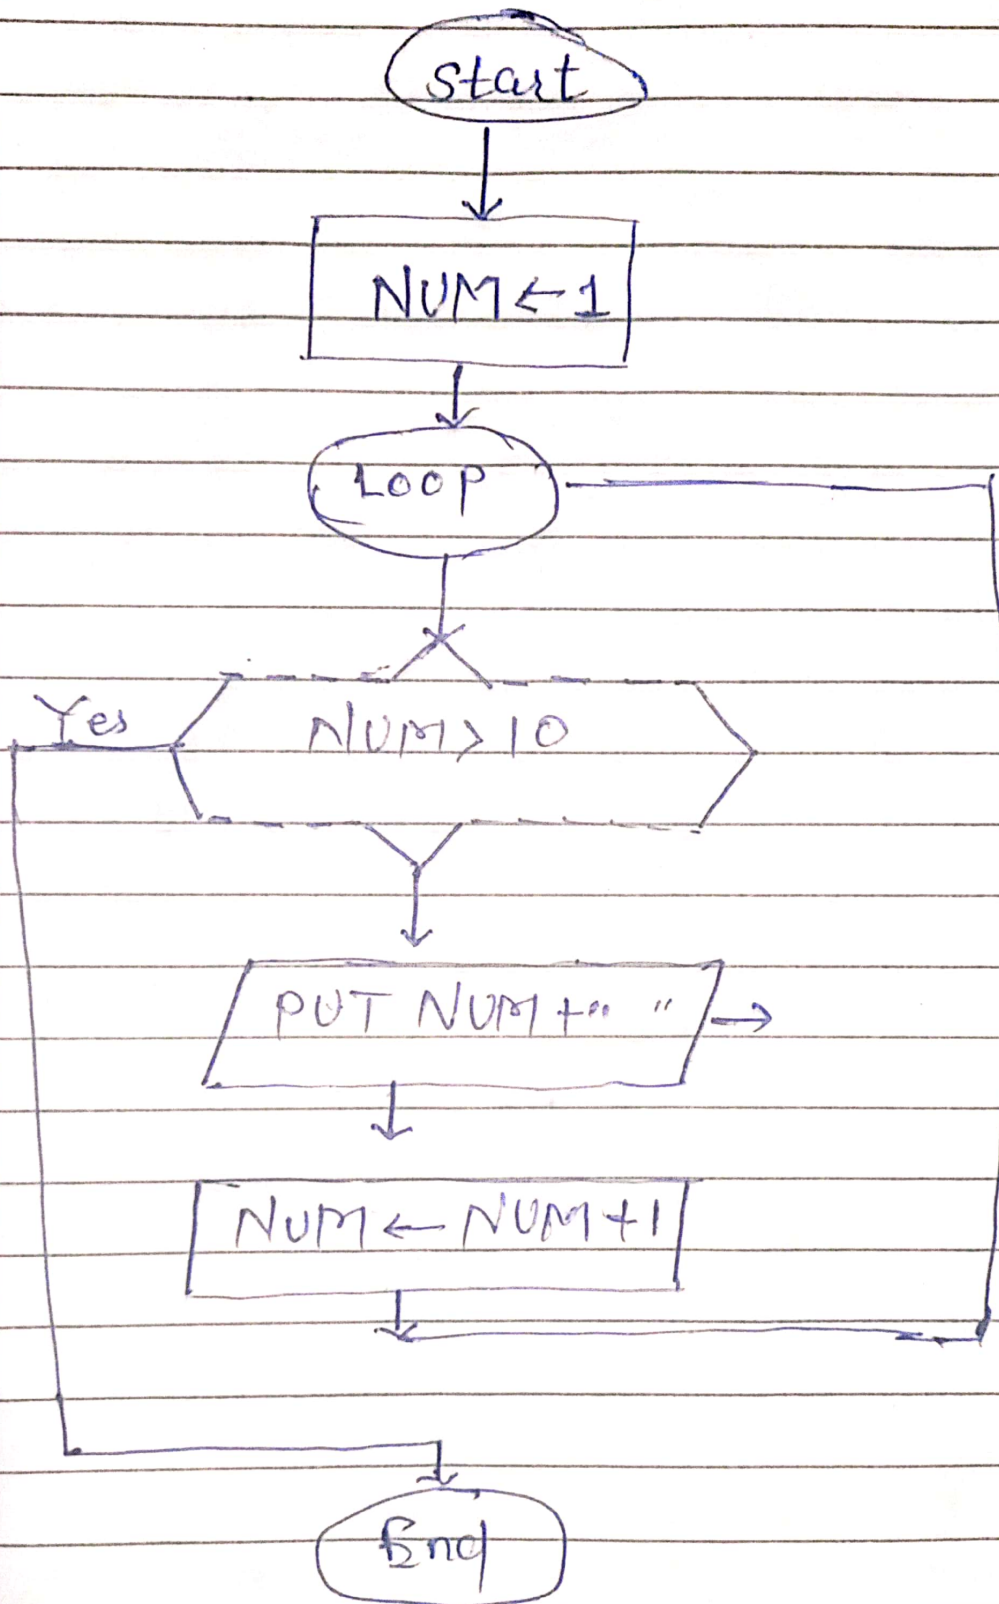 Start
NUM ← 1
LOOP
Yes
NUM > 10
PUT NUM + " "
NUM ← NUM + 1
End